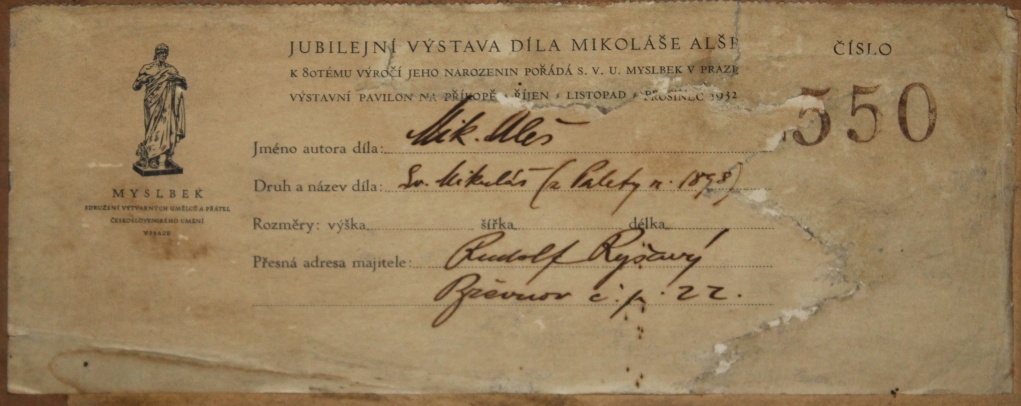 JUBILEJNÍ VÝSTAVA DÍLA MIKOLÁŠE ALŠE
ČÍSLO
K 80TÉMU VÝROČÍ JEHO NAROZENIN POŘÁDÁ S. V. U. MYSLBEK V PRAZE
VÝSTAVNÍ PAVILON NA PŘÍKOPĚ • ŘÍJEN • LISTOPAD • PROSINEC 1932
550
Jméno autora díla: Mik. Aleš
Druh a název díla: Sv. Mikuláš (z Palety r. 1898)
MYSLBEK
SDRUŽENÍ VÝTVARNÝCH UMĚLCŮ A PŘÁTEL
ČESKOSLOVENSKÉHO UMĚNÍ
V PRAZE
Rozměry: výška šířka délka
Přesná adresa majitele: Rudolf Ryšavý
Břevnov č. p. 22.